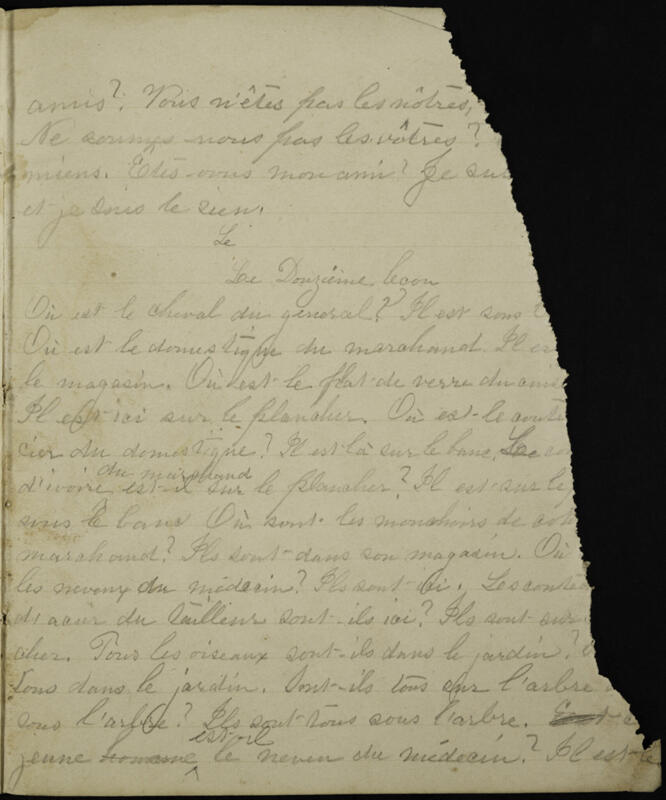 amis? Vous n'êtes pas les nôtres,
Ne sommes-nous pas les vôtres?
miens. Etes-vous mon ami? Je sui
et je suis le sien.
Le
Le Douzième lecon
Où est le cheval du general? Il est sous l
Où est le domestique du marchand. Il es
le magasin. Où est le plat de verre du ami
Il est ici sur le plancher. Où est le coute
cier du domestique? Il est là sur le banc. Le co
du marchand
d'ivoire est-il sur le plancher? Il est sur le
sous le banc Où sont les mouchoirs de coto
marchand? Ils sont dans son magasin. Où
les neveux du médecin? Ils sont ici. Les coute
d'acier du tailleur sont-ils ici? Ils sont sur
cher. Tous les oiseaux sont-ils dans le jardin?
tous dans le jardin. Sont-ils tous sur l'arbre
sous l'arbre? Ils sont tous sous l'arbre.
est-il
jeune homme le neveu du médecin? Il est le